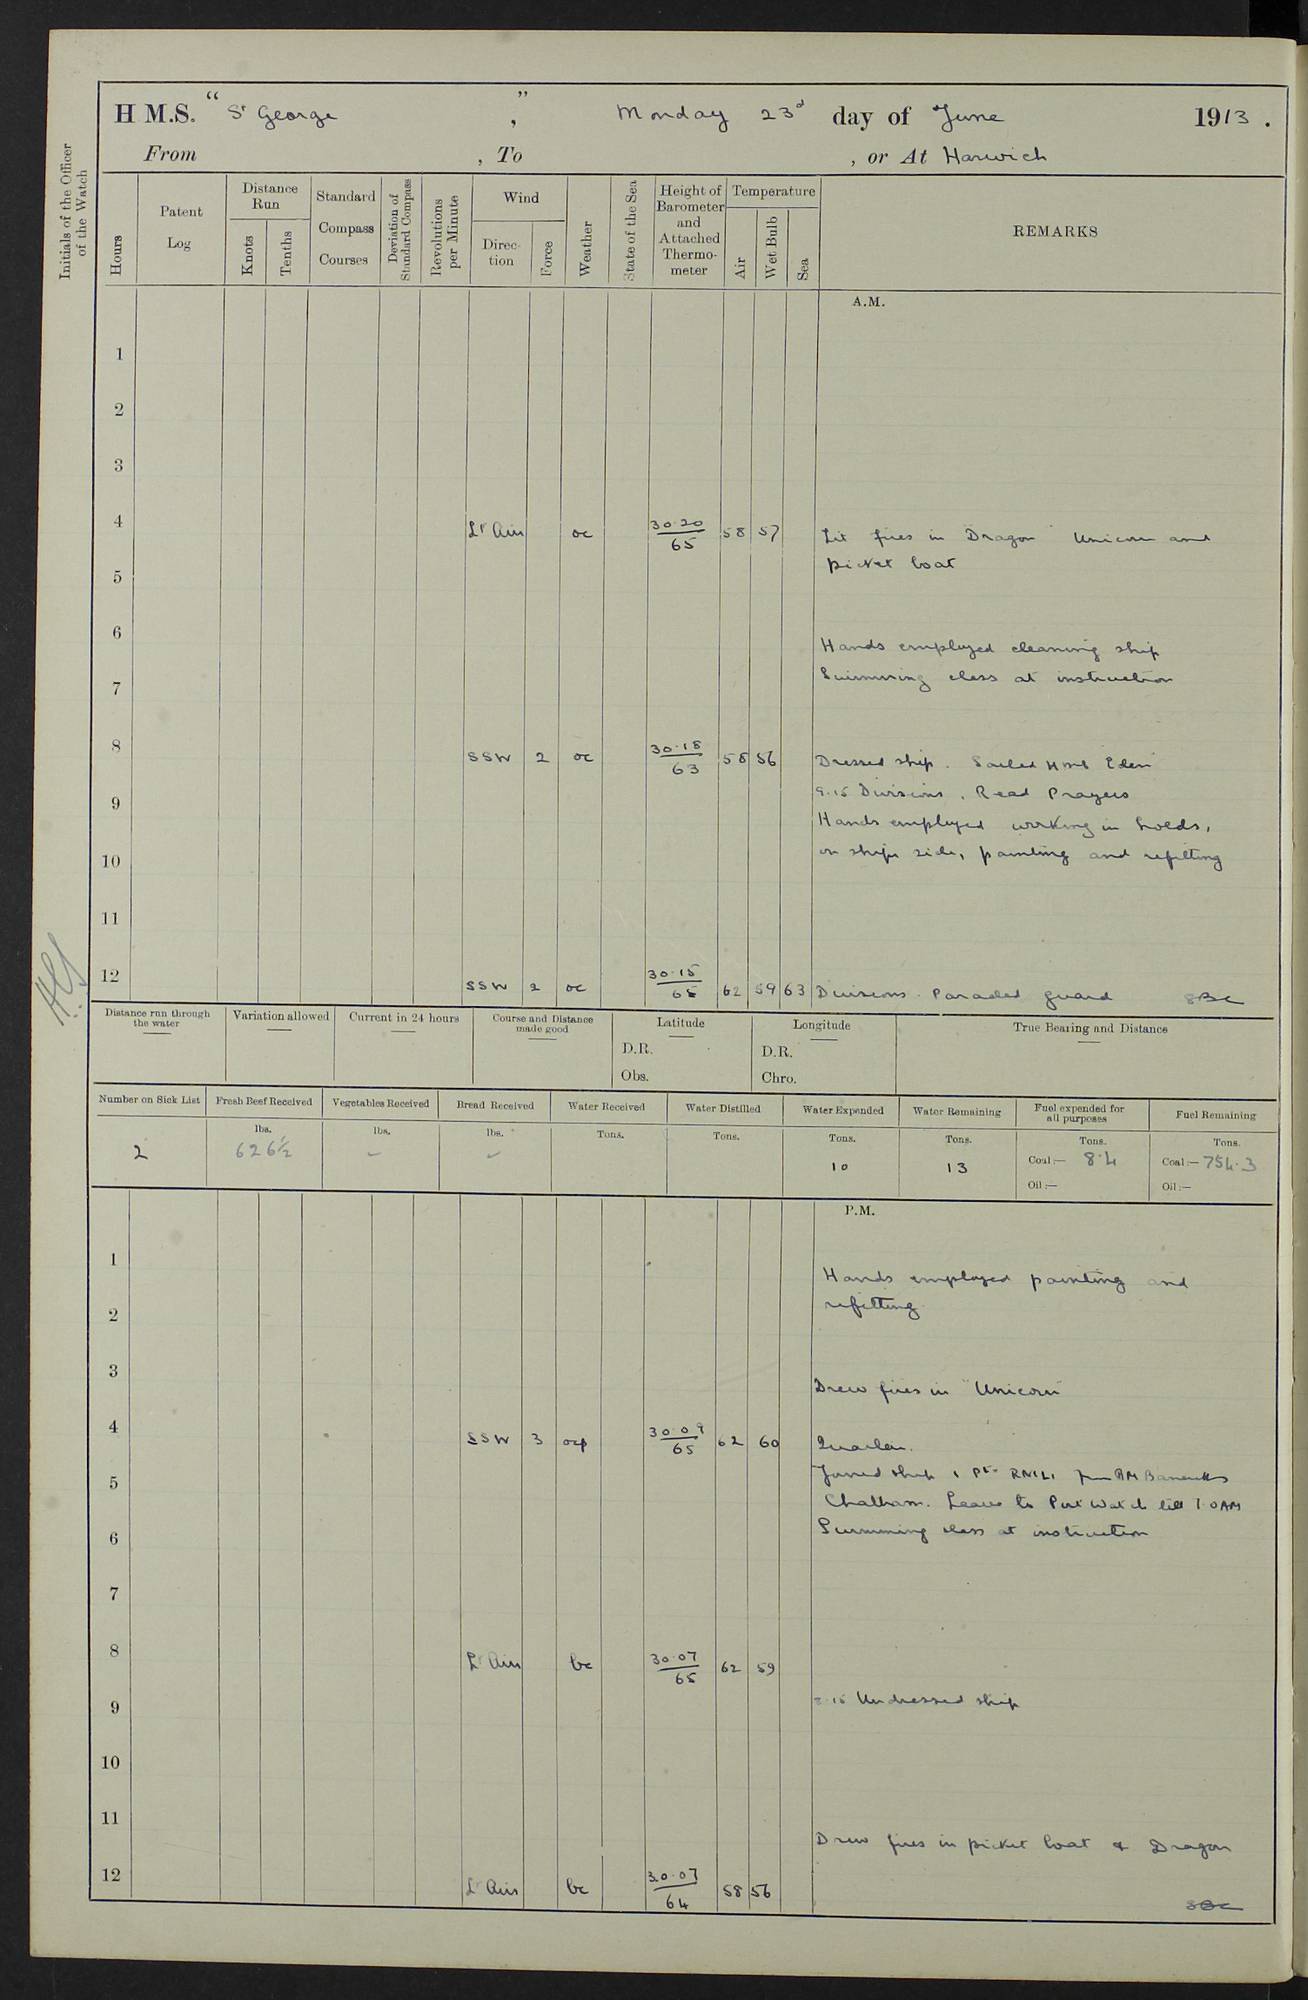 H M.S. “ St George ”, Monday 23d day of June 1913.
From , To , or At Harwich
Initials of the Officer of the Watch
Hours
Patent Log
Distance Run
Knots
Tenths
Standard Compass Courses
Deviation of Standard Compass
Revolutions per Minute
Wind
Direc-tion
Force
Weather
State of the Sea
Height of Barometer and Attached Thermo-meter
Temperature
Air
Wet Bulb
Sea
REMARKS
A.M.
1
2
3
4 Lt Airs oc 30.20/65 58 57 Lit fires in Dragon Unicorn and
picket boat
5
6
Hands employed cleaning ship
Swimming class at instruction
7
8 SSW 2 oc 30.18/63 58 56 Dressed ship. Sailed HMS Eden
9.15 Divisions, Read Prayers
9
Hands employed working in holds,
on ships side, painting and refitting
10
11
12 SSW 2 oc 30.15/65 62 59 63 Divisions. Paraded guard
Distance run through the water
Variation allowed
Current in 24 hours
Course and Distance made good
Latitude
D.R.
Obs.
Longitude
D.R.
Chro.
True Bearing and Distance
Number on Sick List
Fresh Beef Received
Vegetables Received
Bread Received
Water Received
Water Distilled
Water Expended
Water Remaining
Fuel expended for all purposes
Fuel Remaining
2
lbs. 626½
lbs. –
lbs. –
Tons.
Tons.
Tons. 10
Tons. 13
Tons. Coal:— 8.4 Oil:—
Tons. Coal:— 754.3 Oil:—
P.M.
1
Hands employed painting and
refitting
2
3
Drew fires in "Unicorn"
4 SSW 3 ocp 30.09/65 62 60 Quarters.
Joined ship 1 Pte RMLI from RM Barracks
5
Chatham. Leave to Port Watch till 7.0 AM
Swimming class at instruction
6
7
8 Lt Airs bc 30.07/65 62 59
8.15 Undressed ship
9
10
11
Drew fires in picket boat & Dragon
12 Lt Airs bc 30.07/64 58 56